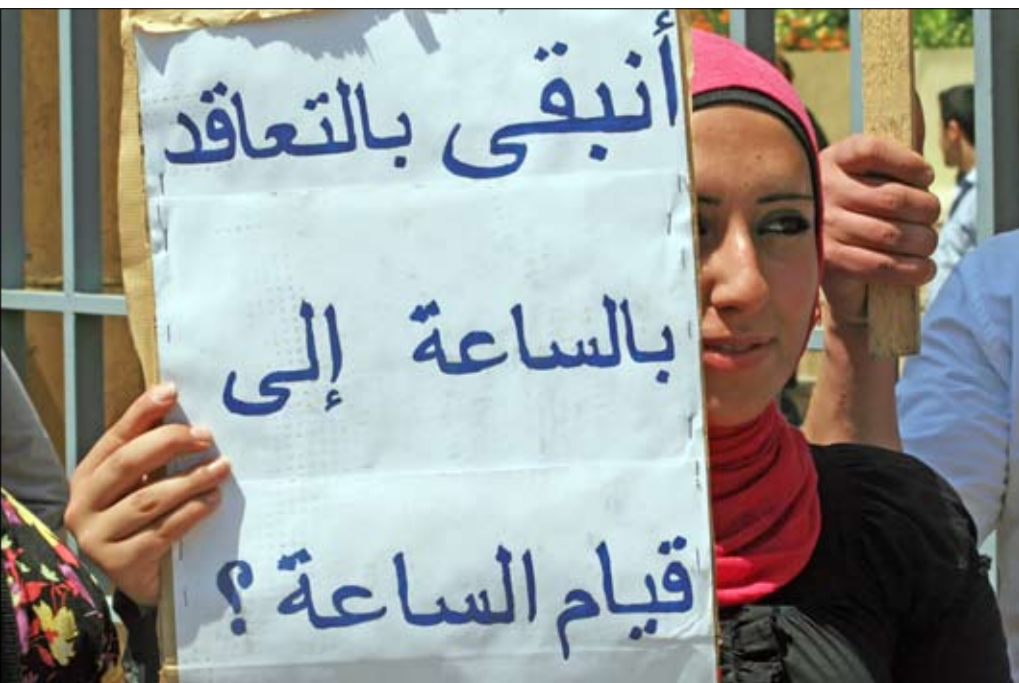 أنبقى بالتعاقد
بالساعة إلى
قيام الساعة؟